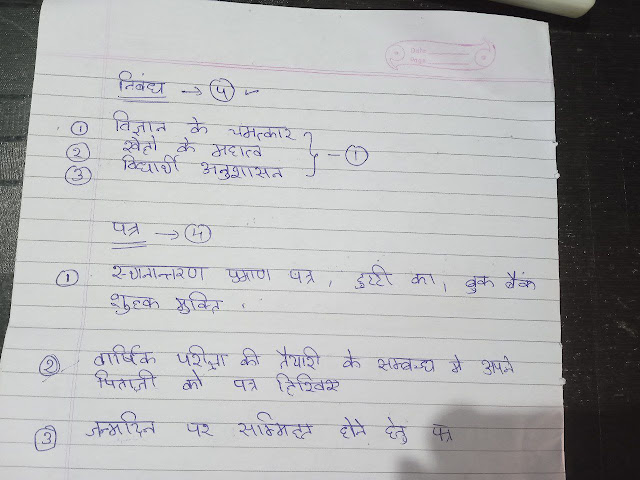 Date
Page
निबंध → ५ ✓
① विज्ञान के चमत्कार
② खेलो के महात्व } - ①
③ विद्यार्थी अनुशासन
पत्र → ५
① स्थानान्तरण प्रमाण पत्र, छुट्टी का, बुक बैंक
शुल्क मुक्ति .
② वार्षिक परीक्षा की तैयारी के सम्बन्ध मे अपने
पिताजी को पत्र लिखिए
③ जन्मदिन पर सम्मिलित होने हेतु पत्र